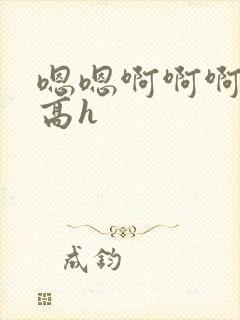 嗯嗯啊啊啊
高h
成钧